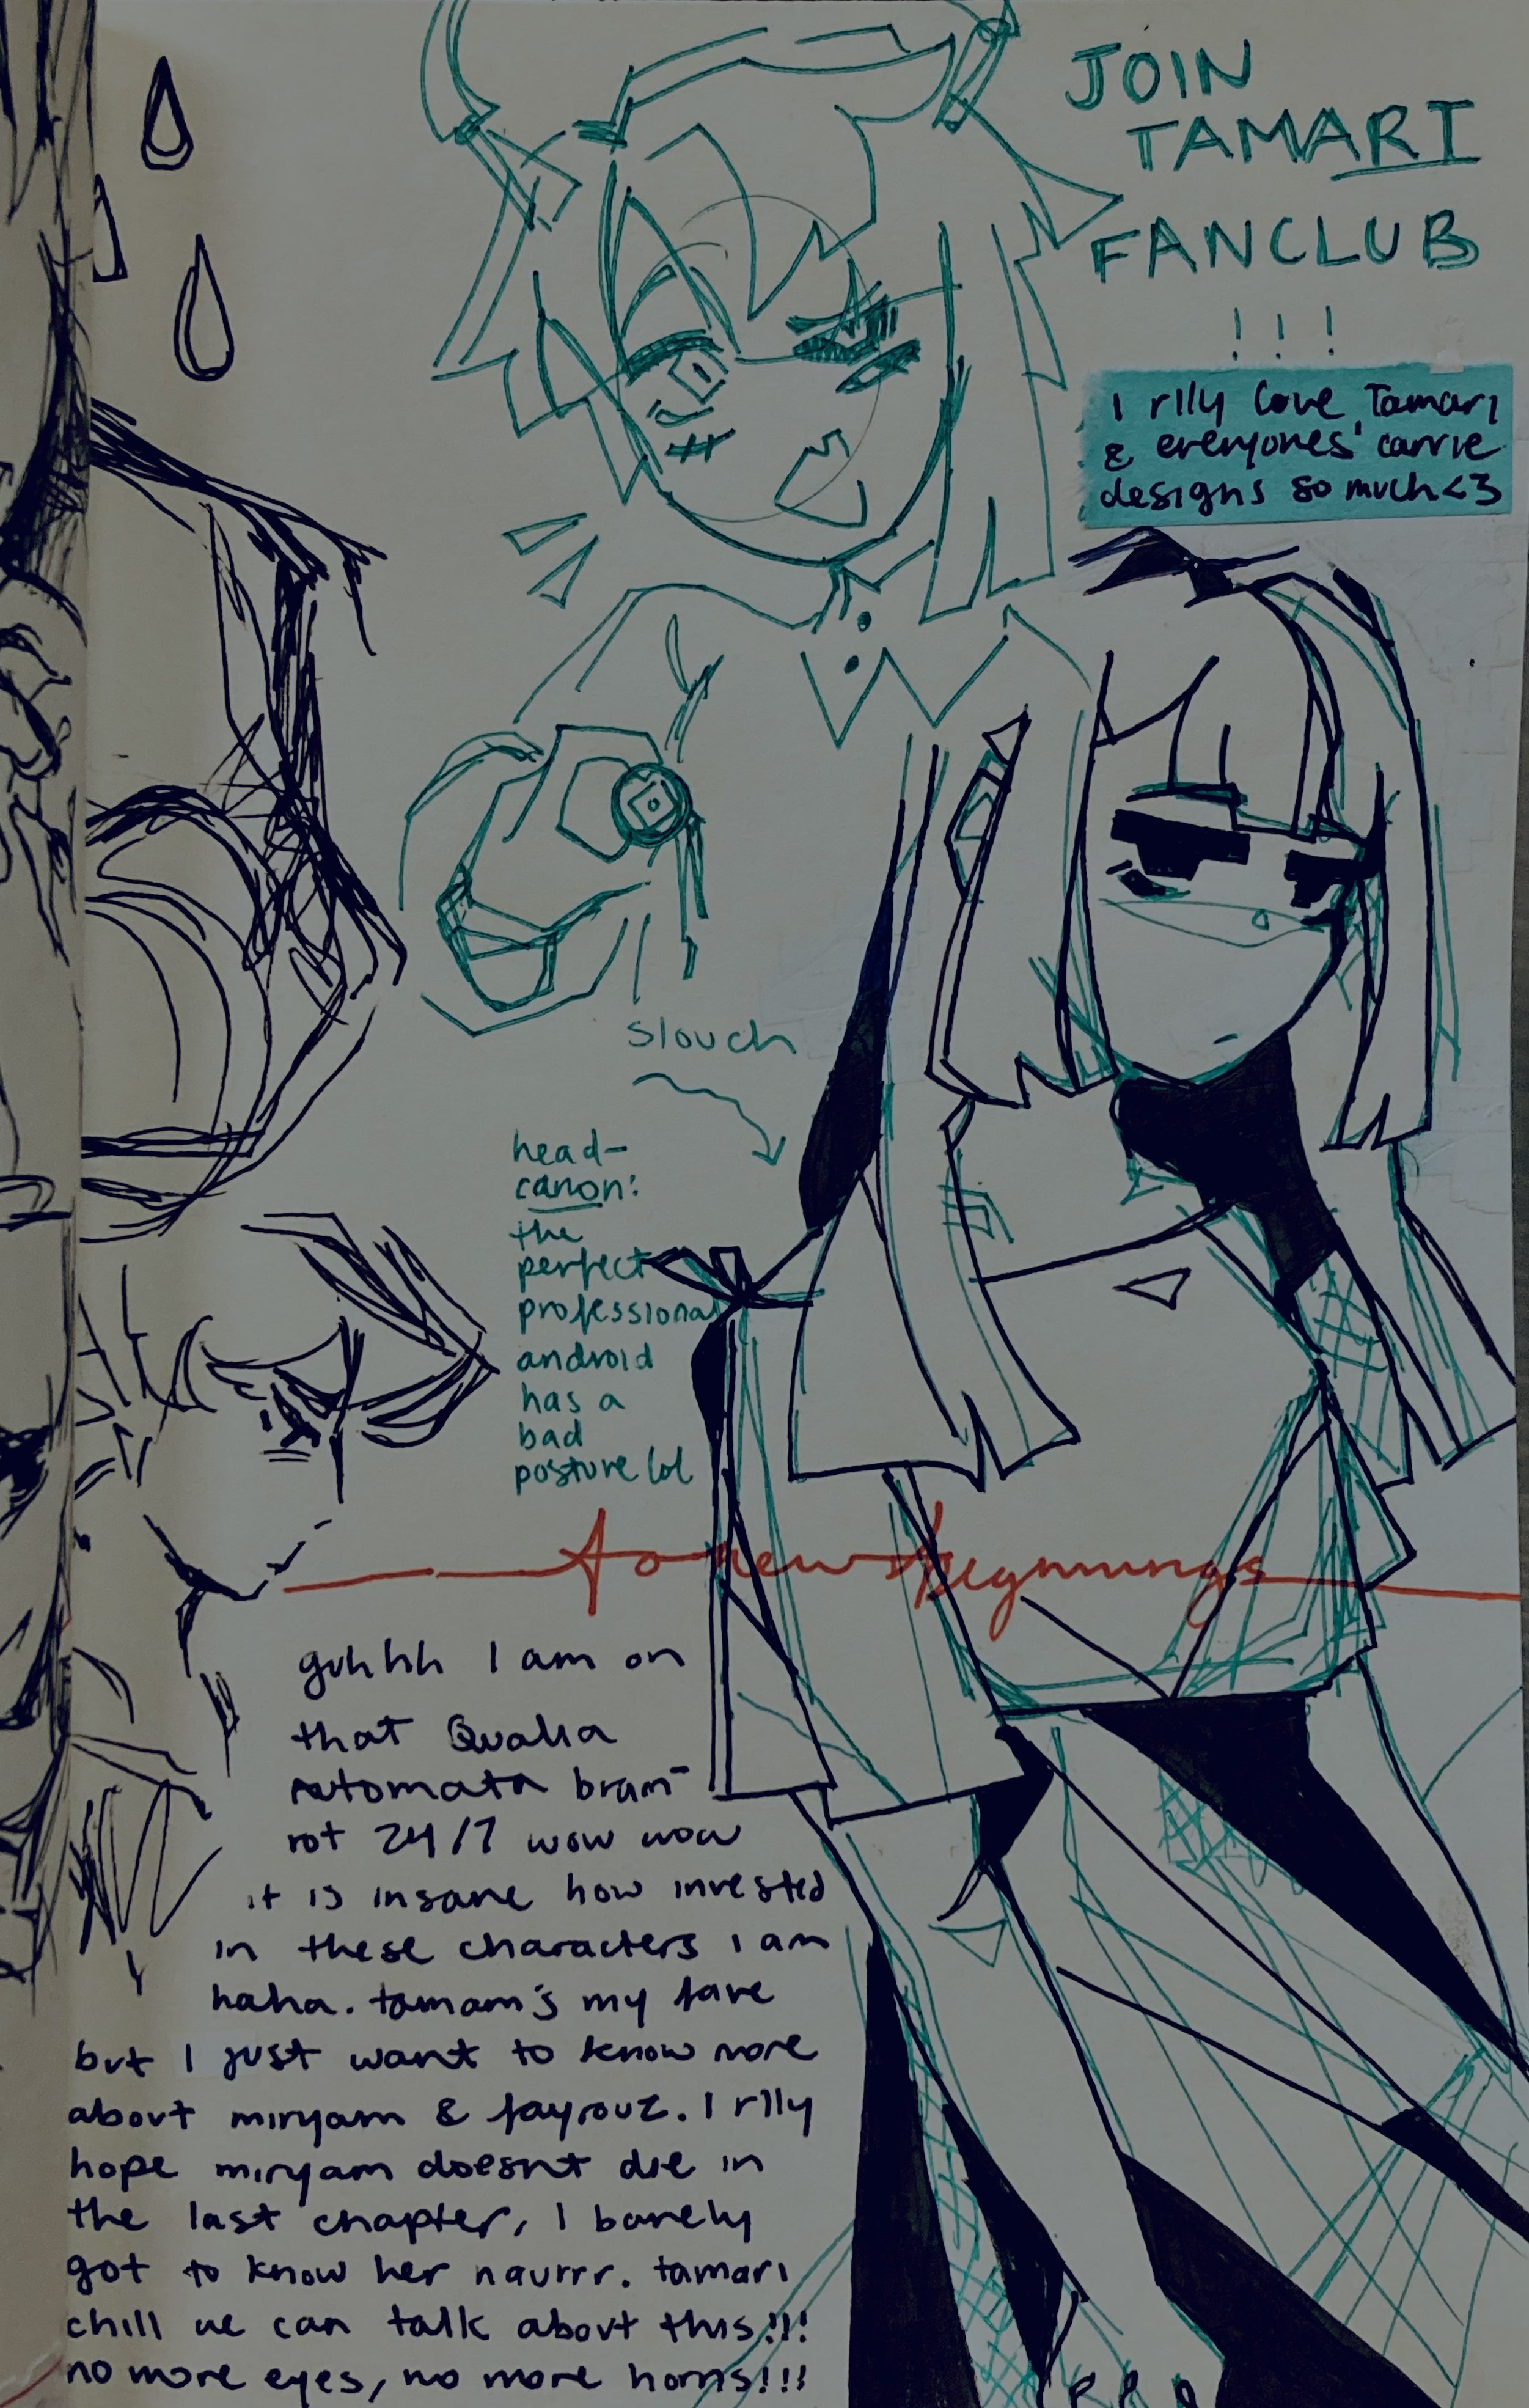 JOIN
TAMARI
FANCLUB
!!!
I rlly love Tamari
& everyones' carrie
designs so much <3
slouch
head-
canon:
the
perfect
professional
android
has a
bad
posture lol
to new beginnings
guhhh I am on
that Qualia
automata brain-
rot 24/7 wow wow
it is insane how invested
in these characters I am
haha. tamari's my fave
but I just want to know more
about miryam & fayrouz. I rlly
hope miryam doesnt die in
the last chapter, I barely
got to know her naurrr. tamari
chill we can talk about this!!!
no more eyes, no more horns!!!